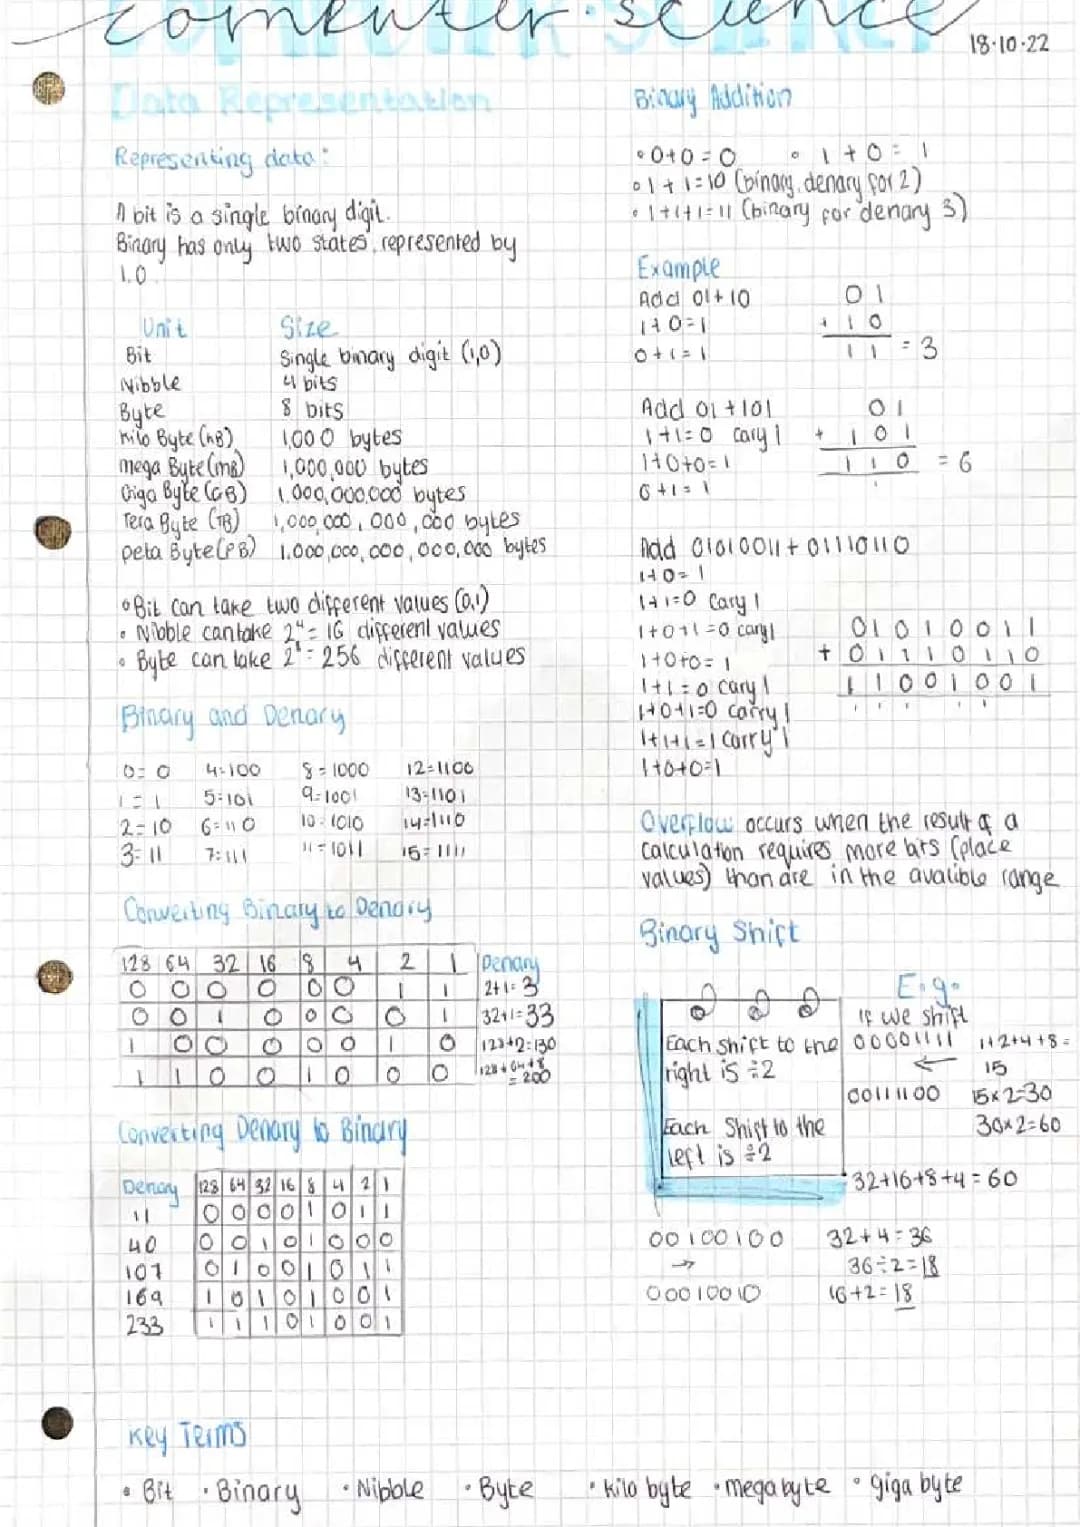 computer science
COMPUTER SCIENCE
18.10.22
Data Representation
Representing data:
A bit is a single binary digit.
Binary has only two states, represented by
1.0.
Unit Size
Bit Single binary digit (1,0)
Nibble 4 bits
Byte 8 bits
Kilo Byte (KB) 1,000 bytes
mega Byte (MB) 1,000,000 bytes
Giga Byte (GB) 1.000,000,000 bytes
Tera Byte (TB) 1,000,000,000,000 bytes
peta Byte (PB) 1.000,000,000,000,000 bytes
• Bit can take two different values (0,1)
• Nibble can take 2⁴ = 16 different values
• Byte can take 2⁸ = 256 different values
Binary and Denary
0=0 4=100 8=1000 12=1100
1=1 5=101 9=1001 13=1101
2=10 6=110 10=1010 14=1110
3=11 7=111 11=1011 15=1111
Converting Binary to Denary
128 64 32 16 8 4 2 1 Denary
0 0 0 0 0 0 1 1 2+1=3
0 0 1 0 0 0 0 1 32+1=33
1 0 0 0 0 0 1 0 128+2=130
1 1 0 0 1 0 0 0 128+64+8
=200
Converting Denary to Binary
Denary 128 64 32 16 8 4 2 1
11 0 0 0 0 1 0 1 1
40 0 0 1 0 1 0 0 0
107 0 1 0 0 1 0 1 1
169 1 0 1 0 1 0 0 1
233 1 1 1 0 1 0 0 1
Binary Addition
• 0+0=0 • 1+0=1
• 1+1=10 (binary, denary for 2)
• 1+1+1=11 (binary for denary 3)
Example
Add 01+10 01
1+0=1 + 10
0+1=1 11 = 3
Add 01+101 01
1+1=0 cary 1 + 101
1+0+0=1 110 = 6
0+1=1 1
Add 01010011 + 01110110
1+0=1
1+1=0 Cary 1
1+0+1=0 cary 1 01010011
1+0+0=1 + 01110110
1+1=0 cary 1 11001001
1+0+1=0 carry 1 1 1 1 1 1
1+1+1=1 Carry 1
1+0+0=1
Overflow occurs when the result of a
calculation requires more bits (place
values) than are in the avalible range
Binary Shift
E.g.
If we shift
Each shift to the 00001111 1+2+4+8=
right is ÷2 ← 15
00111100 15×2=30
Each Shift to the 30×2=60
left is ÷2
32+16+8+4=60
00100100 32+4=36
→ 36÷2=18
00010010 16+2=18
Key Terms
• Bit • Binary • Nibble • Byte • kilo byte • mega byte • giga byte